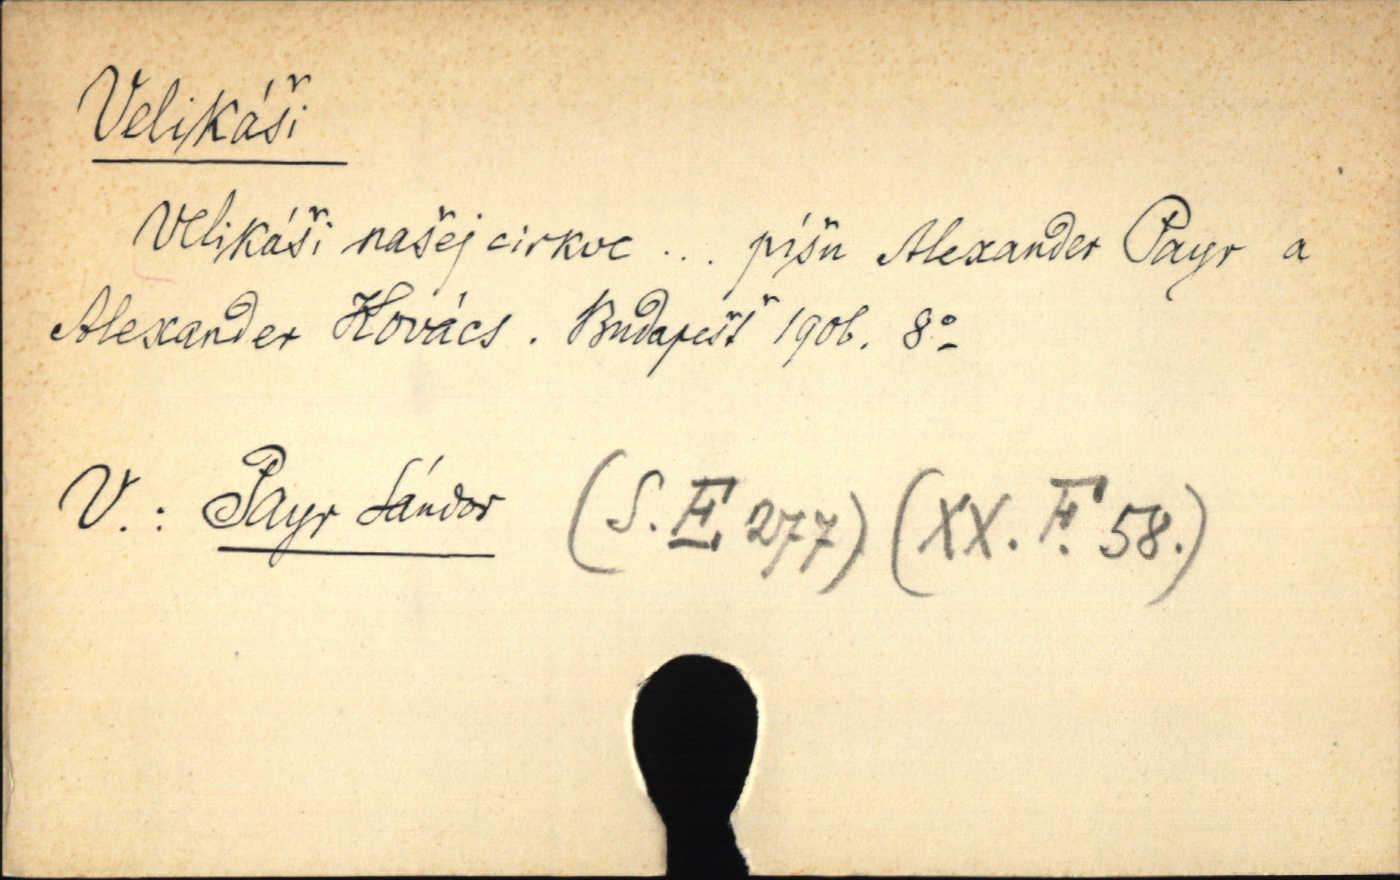 Velikáši
Velikáši našej cirkve ... píšu Alexander Payr a
Alexander Kovács. Budapešť 1906. 8°
V.: Payr Sándor (S. F. 277) (XX. F. 58.)